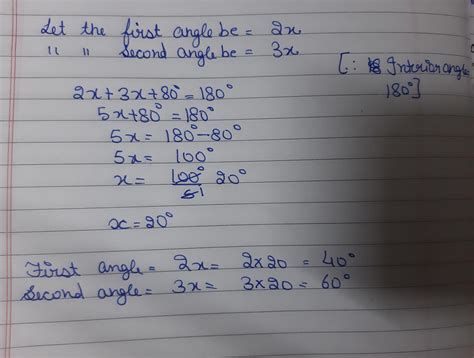 Let the first angle be = 2x
" " second angle be = 3x
[∵ Interior angle
180°]
2x+3x+80° = 180°
5x+80° = 180°
5x = 180°-80°
5x = 100°
x = 100° 20°
5 1
x = 20°
First angle = 2x = 2x20 = 40°
Second angle = 3x = 3x20 = 60°